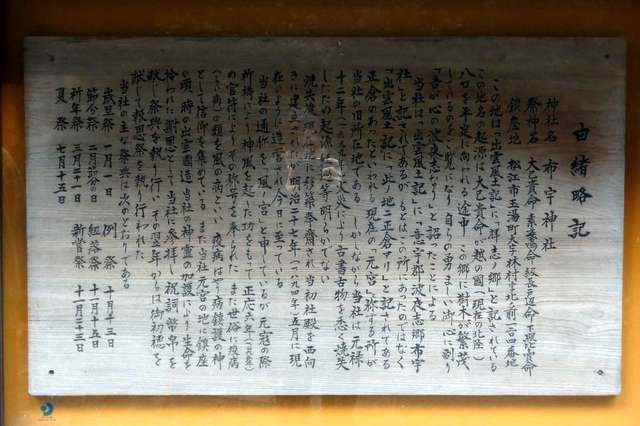 由緒略記
神社名 布宇神社
祭神名 大己貴命 素盞嗚命
鎮座地 松江市玉湯町大字林村字
この地は「出雲風土記」に「拝志ノ郷」と記されている
この地名の起源は大己貴命が越の国(現在の北陸)
八口を平定に向われる途中 この郷に樹木が繁茂
しているのをご覧になり自らの勇ましい御心に
「吾が心の波夜志なり」と詔ったことによる
当社は「出雲風土記」に「意宇郡波夜志郷布宇
社」と記されてあるが もとはこの所にあったのではなく
「出雲風土記」に「此ノ地ニ正倉アリ」と記されてある
正倉のあったといわれる現在の「元宮」と称する所が
当社の旧所在地である しかしながら当社は元禄
十二年 火災により古書古物を悉く焼失
したため起源 等明らかでない
焼失後 現在地に移築奉斎され 当初社殿を西向
きに建立 明治二十七年 五月に現
在のように造営され今日に至っている
当社の通称を「風ノ宮」と申しているが 元寇の際
祈祷により神風を起した功をもって 正応六年
の官符によりその称号を奉られた また世俗に疫病
の類を風の病といい 疫病はやり病鎮護の神
として信仰を集めている また当社元宮の地に鎮座
の頃 時の出雲国造 当社の神霊の加護により生命を
拾われた謝恩として 当社に参拝し 祝詞 幣帛を
献じ祭典を執り行い その翌年からは御初穂を
献じて報恩祭を執り行われた
当社の主な祭典は次のとおりである
歳旦祭 一月一日 例祭 十月十三日
節分祭 二月節分の日 紐落祭 十一月十五日
祈年祭 三月二十一日 新嘗祭 十一月二十三日
夏祭 七月十五日